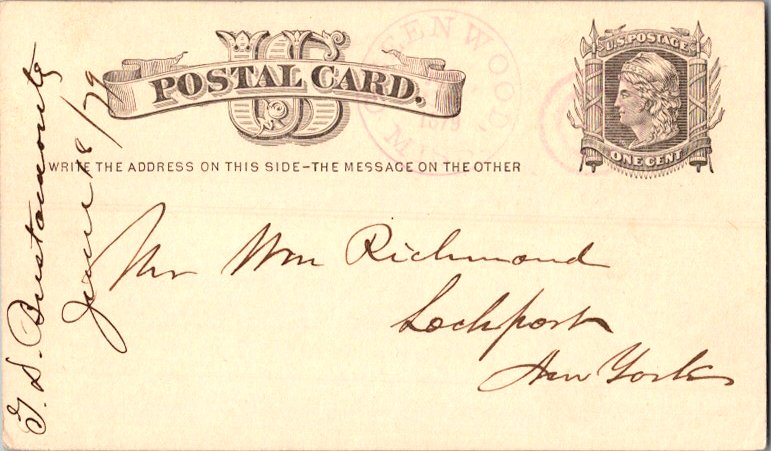 US
POSTAL CARD.
WRITE THE ADDRESS ON THIS SIDE–THE MESSAGE ON THE OTHER
U.S. POSTAGE
ONE CENT
EENWOOD
1879
MISS
Mr Wm Richmond
Lockport
New York
T. S.
June 18/79